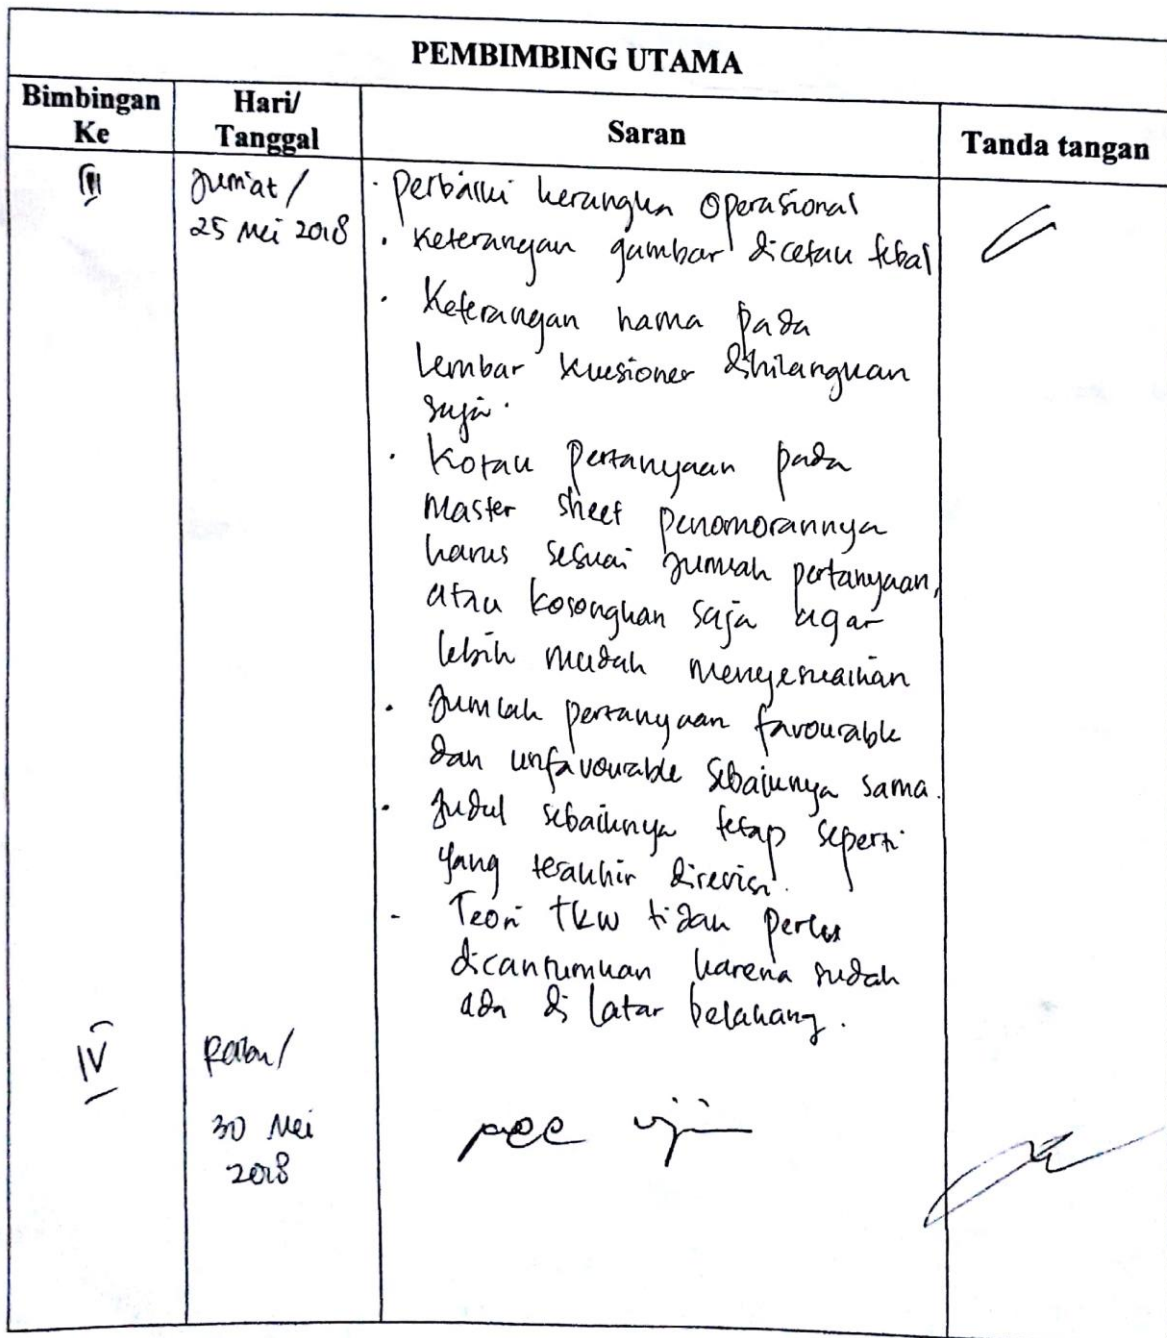 PEMBIMBING UTAMA
Bimbingan Ke
Hari/ Tanggal
Saran
Tanda tangan
III
Jum'at /
25 Mei 2018
· Perbaiki kerangka Operasional
· Keterangan gambar dicetak tebal
· Keterangan nama pada
lembar kuesioner dihilangkan
saja.
· Kotak pertanyaan pada
Master sheet penomorannya
harus sesuai jumlah pertanyaan,
atau kosongkan saja agar
lebih mudah menyesuaikan
· Jumlah pertanyaan favourable
dan unfavourable sebaiknya sama.
· Judul sebaiknya tetap seperti
yang terakhir direvisi.
- Teori TKW tidak perlu
dicantumkan karena sudah
ada di latar belakang.
IV
Rabu/
30 Mei
2018
acc uji